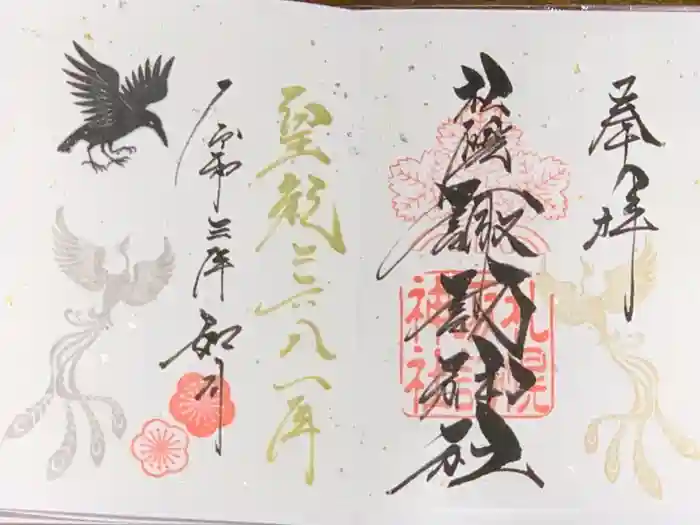 奉拝
札幌諏訪神社
札幌
諏訪
神社
皇紀二六八一年
令和三年 如月